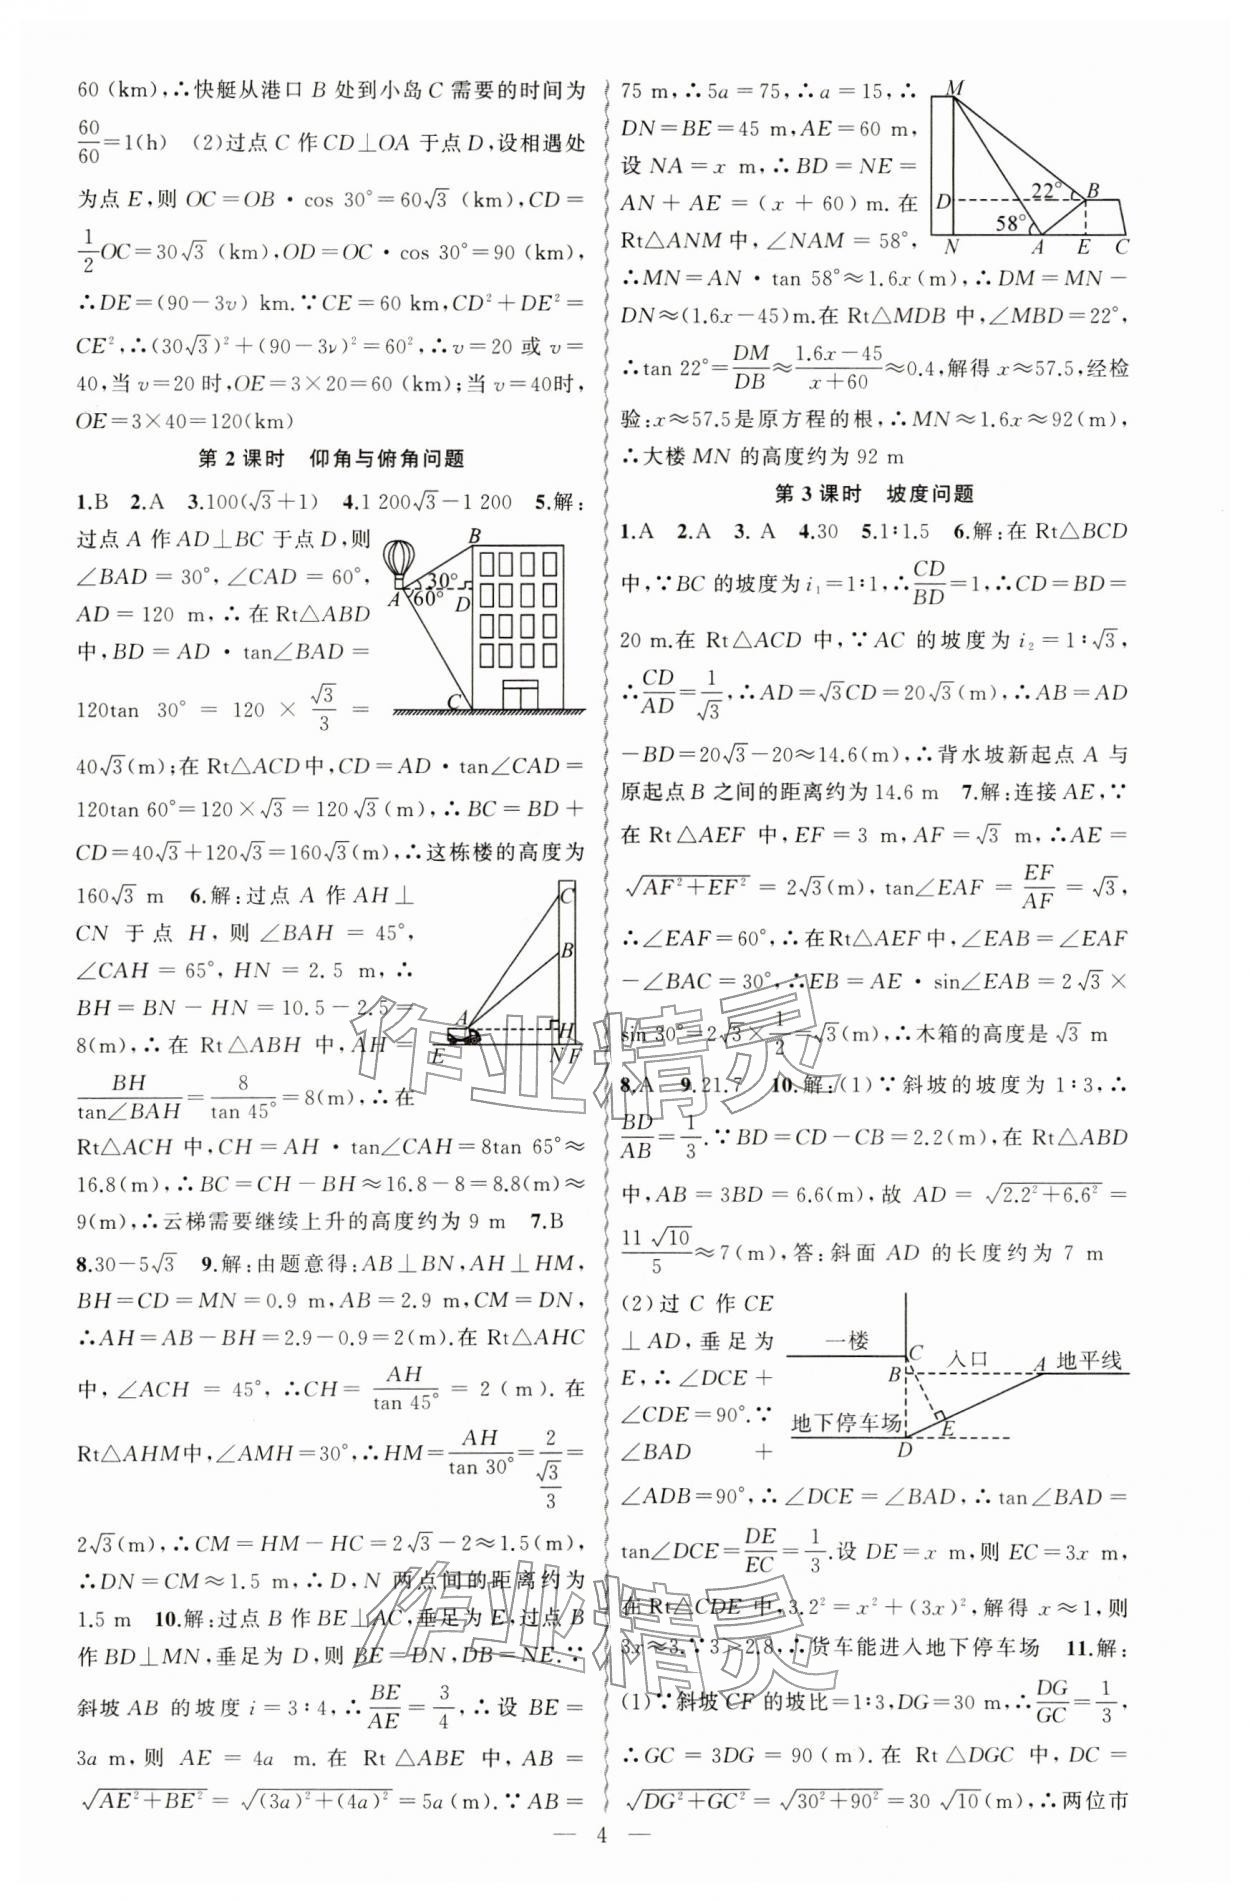 60 (km),∴快艇从港口 B 处到小岛 C 需要的时间为
60/60=1(h) (2)过点 C 作 CD⊥OA 于点 D,设相遇处
为点 E,则 OC=OB·cos 30°=60√3 (km),CD=
1/2OC=30√3 (km),OD=OC·cos 30°=90 (km),
∴DE=(90-3v) km.∵CE=60 km,CD²+DE²=
CE²,∴(30√3)²+(90-3v)²=60²,∴v=20 或 v=
40,当 v=20 时,OE=3×20=60 (km);当 v=40时,
OE=3×40=120(km)
第 2 课时 仰角与俯角问题
1.B 2.A 3.100(√3+1) 4.1 200√3-1 200 5.解:
过点 A 作 AD⊥BC 于点 D,则
∠BAD=30°,∠CAD=60°,
AD=120 m,∴在 Rt△ABD
中,BD=AD·tan∠BAD=
120tan 30°=120×√3/3=
B
30°
60°
A
D
C
40√3(m);在 Rt△ACD中,CD=AD·tan∠CAD=
120tan 60°=120×√3=120√3(m),∴BC=BD+
CD=40√3+120√3=160√3(m),∴这栋楼的高度为
160√3 m 6.解:过点 A 作 AH⊥
CN 于点 H,则∠BAH=45°,
∠CAH=65°,HN=2.5 m,∴
BH=BN-HN=10.5-2.5=
8(m),∴在 Rt△ABH 中,AH=
BH/tan∠BAH=8/tan 45°=8(m),∴在
C
B
A
H
E
N F
Rt△ACH 中,CH=AH·tan∠CAH=8tan 65°≈
16.8(m),∴BC=CH-BH≈16.8-8=8.8(m)≈
9(m),∴云梯需要继续上升的高度约为 9 m 7.B
8.30-5√3 9.解:由题意得:AB⊥BN,AH⊥HM,
BH=CD=MN=0.9 m,AB=2.9 m,CM=DN,
∴AH=AB-BH=2.9-0.9=2(m).在 Rt△AHC
中,∠ACH=45°,∴CH=AH/tan 45°=2(m).在
Rt△AHM中,∠AMH=30°,∴HM=AH/tan 30°=2/(√3/3)=
2√3(m),∴CM=HM-HC=2√3-2≈1.5(m),
∴DN=CM≈1.5 m,∴D,N 两点间的距离约为
1.5 m 10.解:过点 B 作 BE⊥AC,垂足为 E,过点 B
作 BD⊥MN,垂足为 D,则 BE=DN,DB=NE.∵
斜坡 AB 的坡度 i=3∶4,∴BE/AE=3/4,∴设 BE=
3a m,则 AE=4a m.在 Rt△ABE 中,AB=
√(AE²+BE²)=√((3a)²+(4a)²)=5a(m).∵AB=
75 m,∴5a=75,∴a=15,∴
DN=BE=45 m,AE=60 m,
设 NA=x m,∴BD=NE=
AN+AE=(x+60)m.在
Rt△ANM中,∠NAM=58°,
M
D
22°
B
58°
N
A
E
C
∴MN=AN·tan 58°≈1.6x(m),∴DM=MN-
DN≈(1.6x-45)m.在 Rt△MDB 中,∠MBD=22°,
∴tan 22°=DM/DB≈(1.6x-45)/(x+60)≈0.4,解得 x≈57.5,经检
验:x≈57.5是原方程的根,∴MN≈1.6x≈92(m),
∴大楼 MN 的高度约为 92 m
第 3 课时 坡度问题
1.A 2.A 3.A 4.30 5.1∶1.5 6.解:在 Rt△BCD
中,∵BC 的坡度为 i₁=1∶1,∴CD/BD=1,∴CD=BD=
20 m.在 Rt△ACD 中,∵AC 的坡度为 i₂=1∶√3,
∴CD/AD=1/√3,∴AD=√3CD=20√3(m),∴AB=AD
-BD=20√3-20≈14.6(m),∴背水坡新起点 A 与
原起点 B 之间的距离约为 14.6 m 7.解:连接 AE,∵
在 Rt△AEF 中,EF=3 m,AF=√3 m,∴AE=
√(AF²+EF²)=2√3(m),tan∠EAF=EF/AF=√3,
∴∠EAF=60°,∴在Rt△AEF中,∠EAB=∠EAF
-∠BAC=30°,∴EB=AE·sin∠EAB=2√3×
sin 30°=2√3×1/2=√3(m),∴木箱的高度是√3 m
8.A 9.21.7 10.解:(1)∵斜坡的坡度为 1∶3,∴
BD/AB=1/3.∵BD=CD-CB=2.2(m),在 Rt△ABD
中,AB=3BD=6.6(m),故 AD=√(2.2²+6.6²)=
11√10/5≈7(m),答:斜面 AD 的长度约为 7 m
(2)过 C 作 CE
⊥AD,垂足为
E,∴∠DCE+
∠CDE=90°.∵
∠BAD+
一楼
C
入口
A
地平线
B
地下停车场
E
D
∠ADB=90°,∴∠DCE=∠BAD,∴tan∠BAD=
tan∠DCE=DE/EC=1/3.设 DE=x m,则 EC=3x m,
在 Rt△CDE 中,3.2²=x²+(3x)²,解得 x≈1,则
3x≈3,∵3>2.8,∴货车能进入地下停车场 11.解:
(1)∵斜坡 CF 的坡比=1∶3,DG=30 m,∴DG/GC=1/3,
∴GC=3DG=90(m).在 Rt△DGC 中,DC=
√(DG²+GC²)=√(30²+90²)=30√10(m),∴两位市
— 4 —
作业精灵
作业精灵